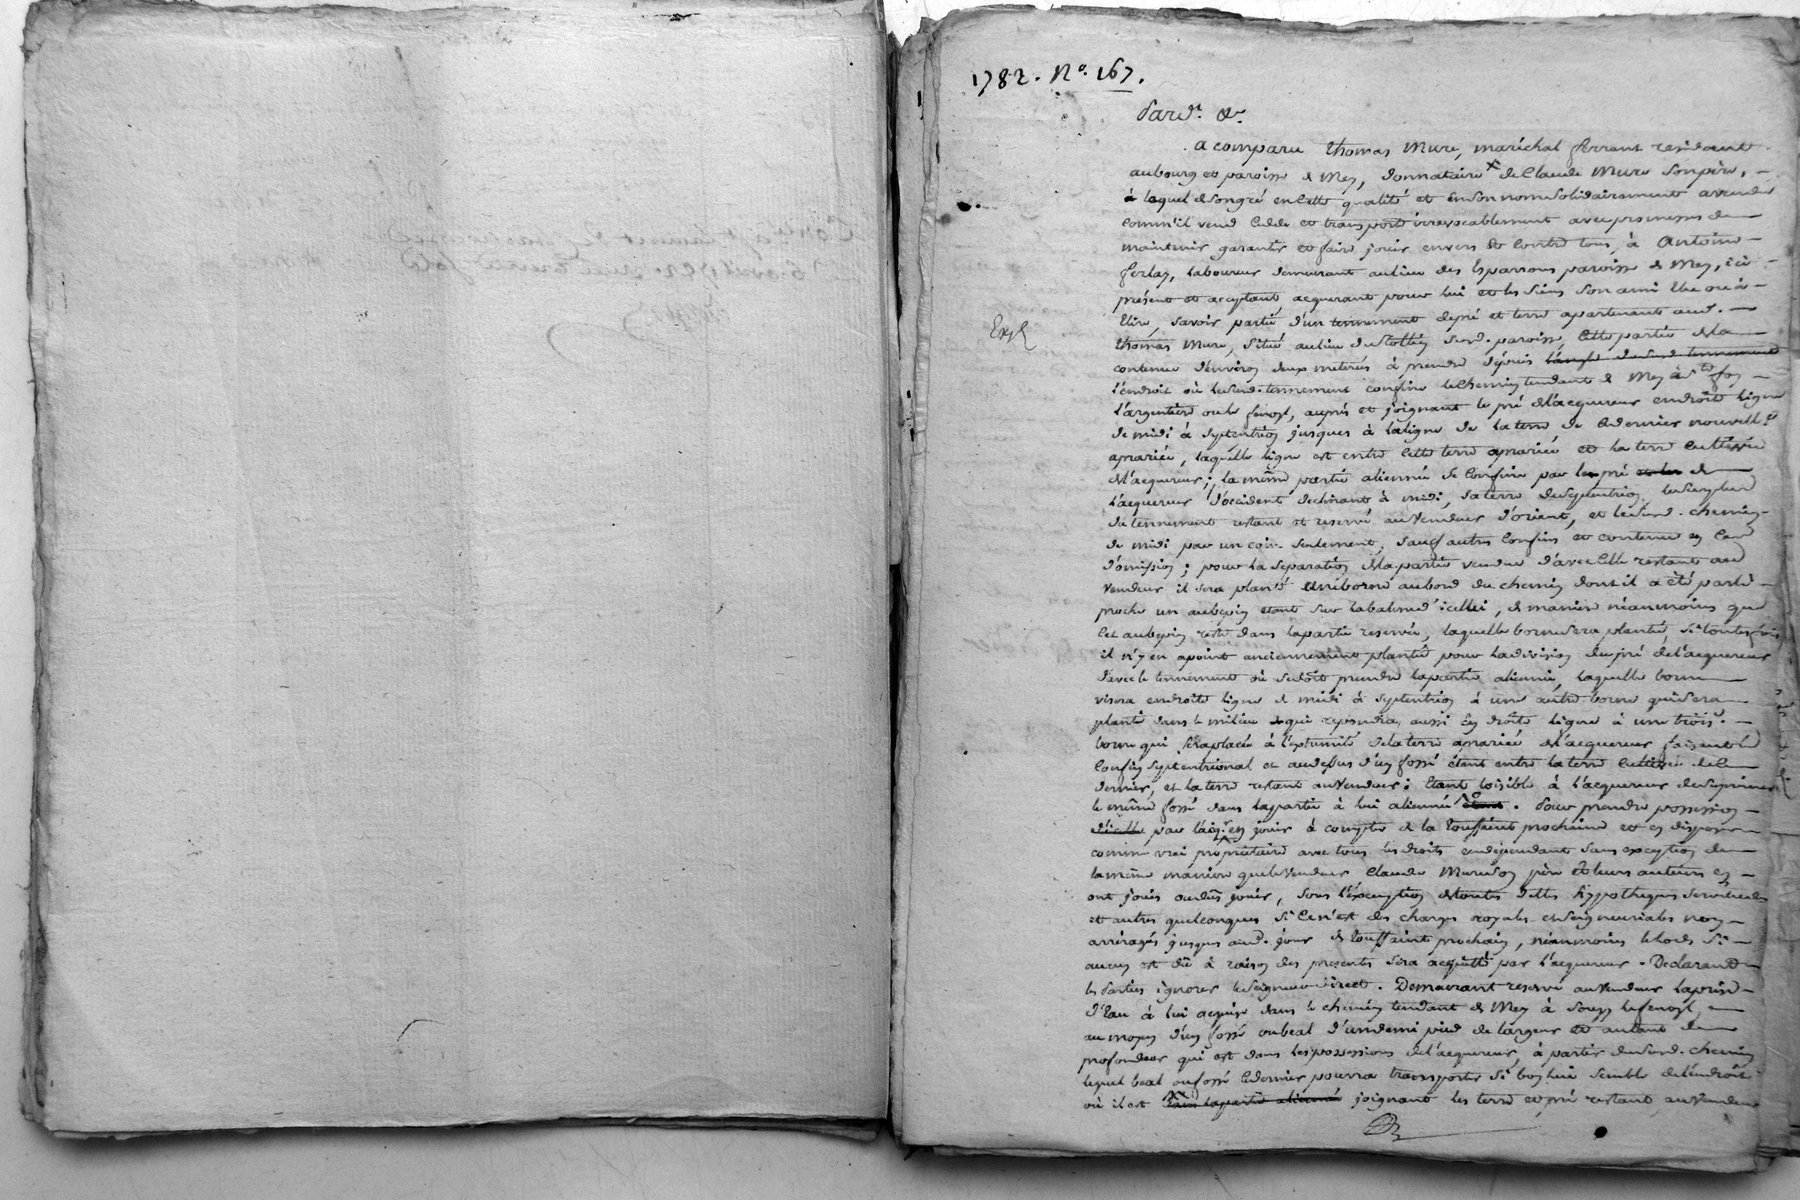 1782. N.º 167.
Pard.t &c.
a comparu thomas Mure, maréchal ferrant residant
au bourg et paroisse de Mey, donnataire de Claude Mure son père, -
lequel de son gré en cette qualité et en son nom solidairement a vendu
comm'il vend cedde et transporte irrevocablement avec promesse de
maintenir garantir et faire jouir envers et contre tous, à Antoine
ferlay, laboureur demeurant au lieu des Esparrons paroisse de Mey, ici
présent et acceptant, acquerant pour lui et les siens son ami Elu ou à
Elire, savoir partie d'un tennement de pré et terre apartenant aud.
Exp
thomas Mure, situé au lieu susd. paroisse, cette partie de la
contenue d'environ deux meterés à prendre depuis
l'endroit où le susd. tennement confine le chemin tendant de Mey à S.te foy
l'argentiere ou le fenoyl, auprés et joignant le pré de l'acquereur en droite ligne
de midi à septentrion jusques à la ligne de la terre de ce dernier nouvell.t
apraviée, laquelle ligne est entre cette terre apraviée et la terre cultivée
de l'acquereur; la même partie alienné se confine par le pré de
l'acquereur d'occident declinant à midi, sa terre de septentrion, le surplus
du tennement restant et reservé au vendeur d'orient, et le susd. chemin
de midi par un coin seulement, sauf autres confins et contenue en cas
d'omission; pour la separation de la partie vendue d'avec celle restante au
vendeur il sera planté une borne au bord du chemin dont il a été parlé
proche un aubepin etant sur la balme d'icellui, de maniere néanmoins que
cet aubepin reste dans la partie reservée, laquelle borne sera plantée, si toutes fois
il n'y en a point anciennement plantée pour la division du pré de l'acquereur
d'avec le tennement où se doit prendre la partie alienné, laquelle borne
visera en droite ligne de midi à septentrion à une autre borne qui sera
planté dans le milieu qui repondra aussi en droite ligne à une trois.e
borne qui sera placée à l'extremité de la terre apraviée de l'acquereur faisant le
confin septentrional et au dessus d'un fossé étant entre la terre cultivée de ce
dernier, et la terre restant au vendeur; Etant loisible à l'acquereur de supprimer
le même fossé dans la partie à lui alienné. Pour prendre possession
par l'acq.r en jouir à compter de la toussaint prochaine et en disposer
comme vrai propriétaire avec tous les droits en dépendant sans exception de
la même maniere que le vendeur Claude Mure son père et leurs auteurs en
ont jouis ou dû jouir, sous l'exemption de toutes dettes hypotheques servitudes
et autres quelconques si ce n'est des charges royales et seigneuriales non
arréragés jusques aud. jour de toussaint prochain, néanmoins le lods si
aucun est dû à raison des presentes sera acquitté par l'acquereur. Declarant
les parties ignorer le seigneur direct. Demeurant reservé au vendeur la prise
d'Eau à lui acquise dans le chemin tendant de Mey à fenoyl,
au moyen d'un fossé ou beal d'un demi pied de largeur et autant de
profondeur qui est dans les possessions de l'acquereur, à partir du susd. chemin
lequel beal ou fossé ce dernier pourra transporter si bon lui semble de l'endroit
où il est joignant les terre et pré restant au vendeur